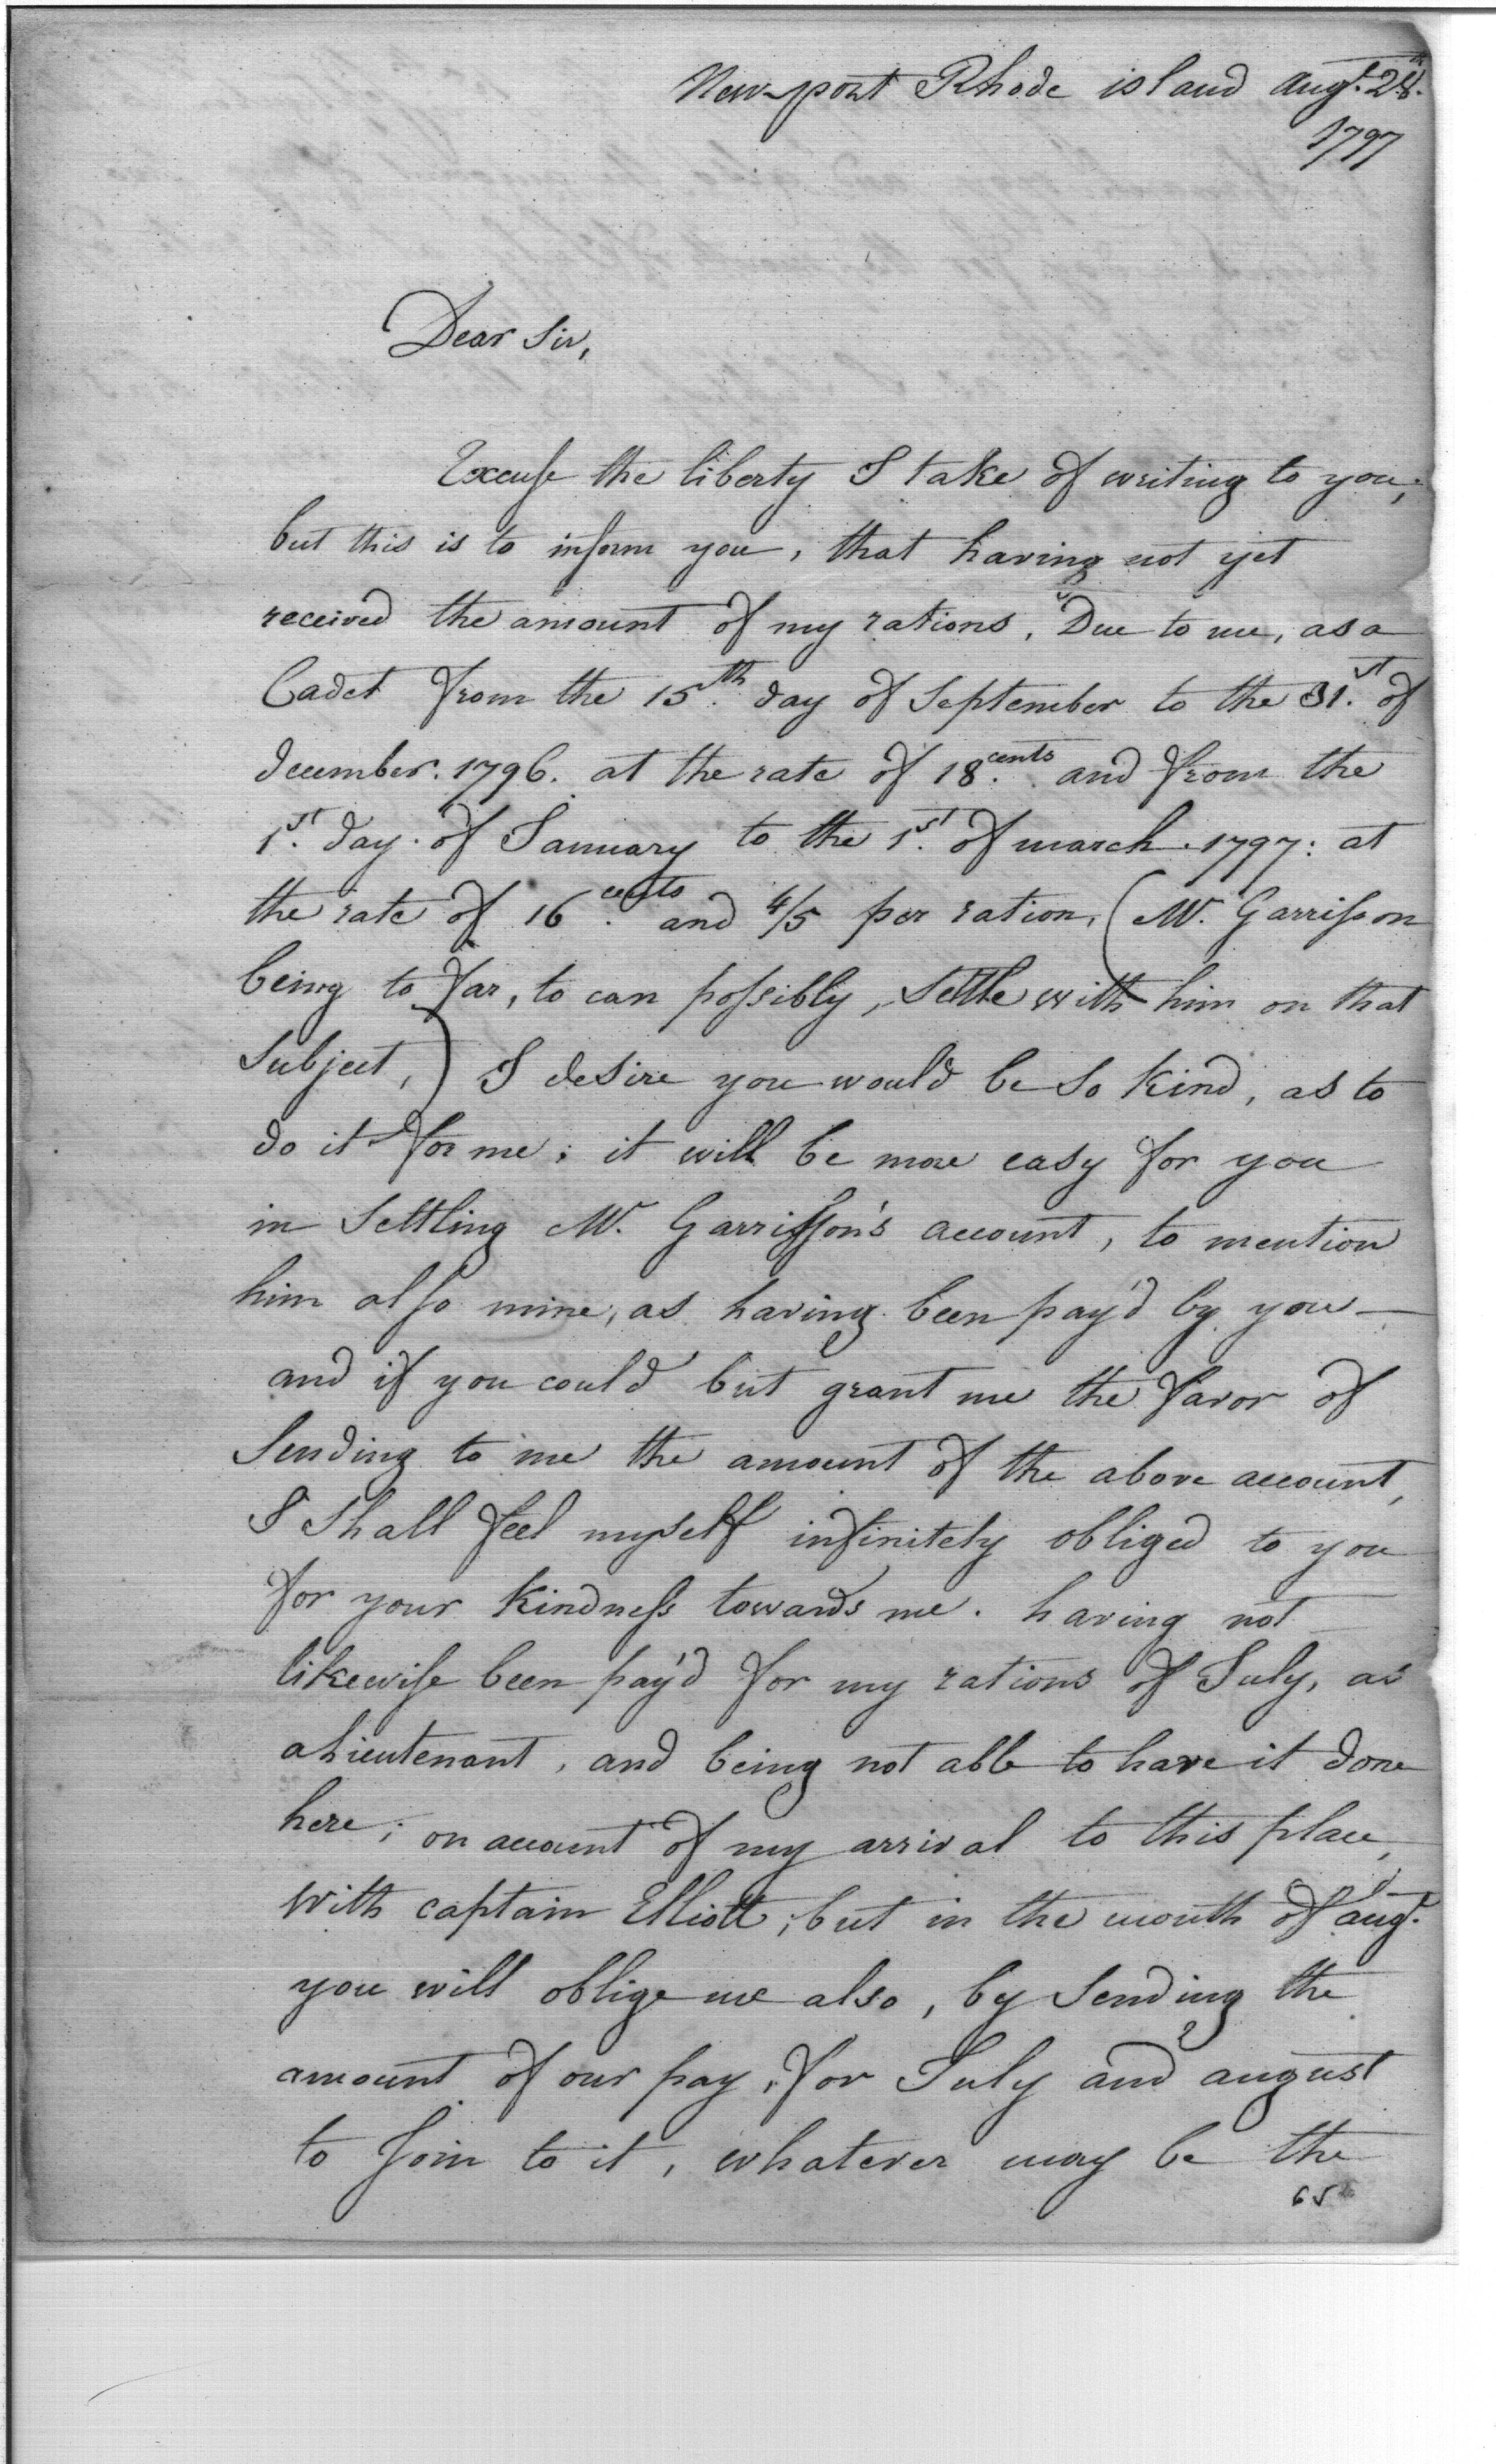 New-port Rhode island Augt. 28th.
1797
Dear Sir,
Excuse the liberty I take of writing to you;
but this is to inform you, that having not yet
received the amount of my rations, Due to me, as a
Cadet from the 15th. day of September to the 31.st of
december. 1796. at the rate of 18 cents. and from the
1st. day. of January to the 1st. of march. 1797: at
the rate of 16 cents. and 4/5 per ration, (Mr. Garrisson
being to far, to can possibly, Settle with him on that
Subject,) I desire you would be So Kind, as to
do it for me; it will be more easy for you
in Settling Mr. Garrisson's account, to mention
him also mine, as having been pay'd by you —
and if you could but grant me the favor of
Sending to me the amount of the above account,
I Shall feel myself infinitely obliged to you
for your Kindness towards me. having not
likewise been pay'd for my rations of July, as
a Lieutenant, and being not able to have it done
here; on account of my arrival to this place,
with captain Elliott, but in the month of augt.
you will oblige me also, by Sending the
amount of our pay, for July and august
to Join to it, whatever may be the
65